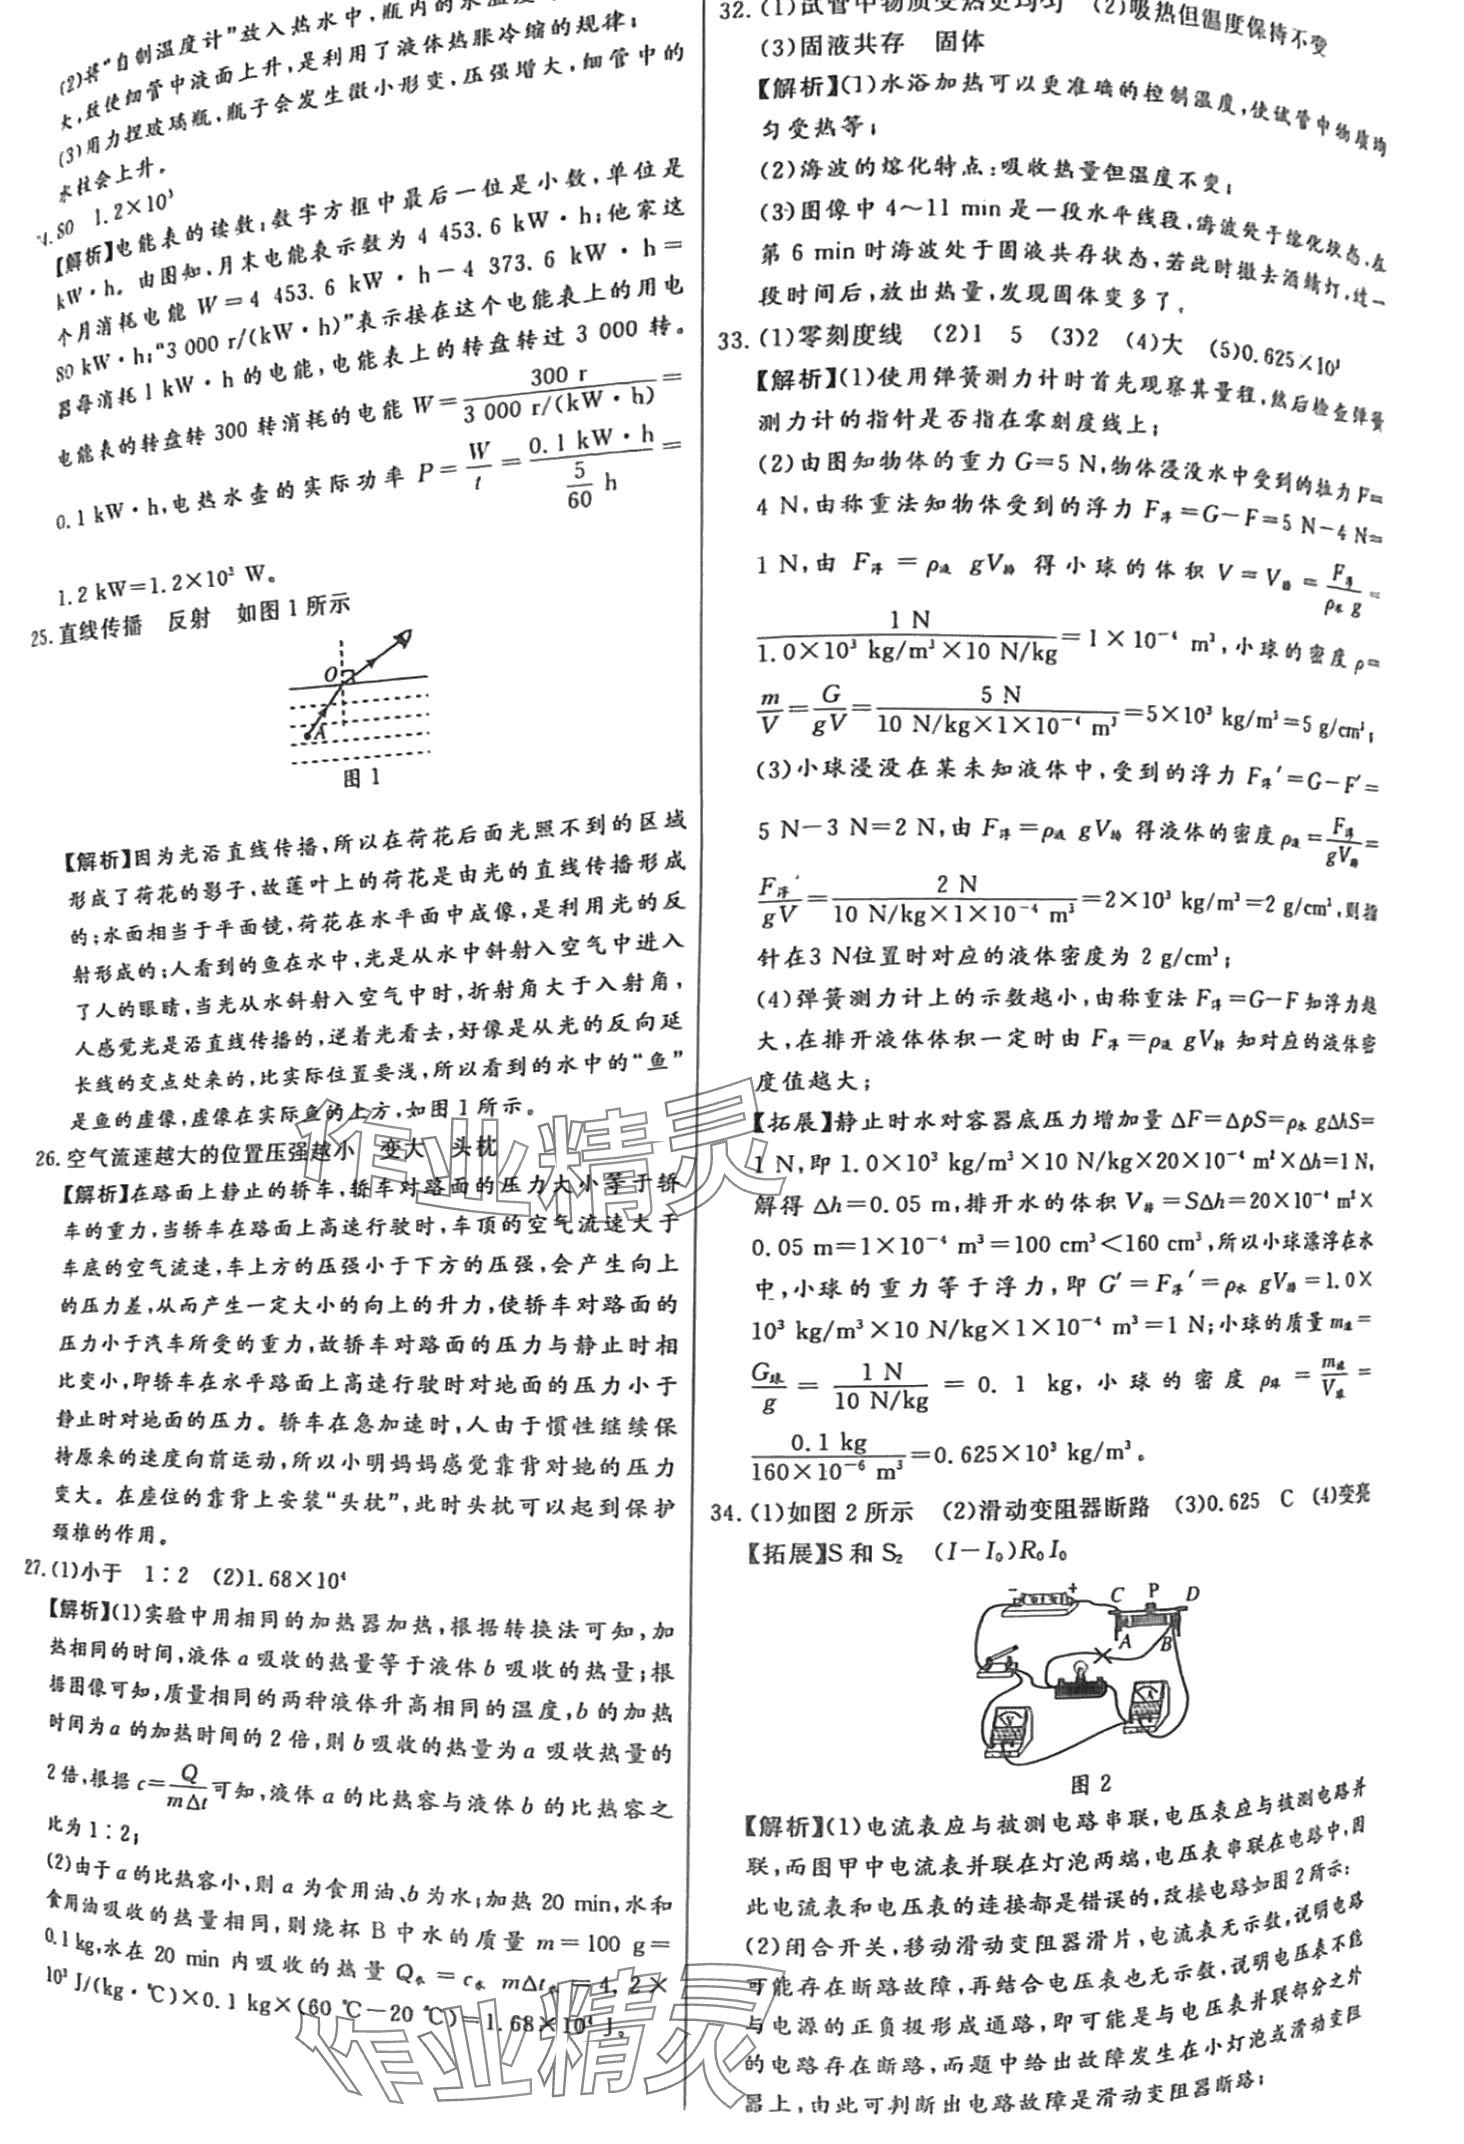 (2)将“自制温度计”放入热水中,瓶内的水温度
大,致使细管中液面上升,是利用了液体热胀冷缩的规律;
(3)用力捏玻璃瓶,瓶子会发生微小形变,压强增大,细管中的
水柱会上升。
80 1.2×10³
【解析】电能表的读数:数字方框中最后一位是小数,单位是
kW·h。由图知,月末电能表示数为 4 453.6 kW·h;他家这
个月消耗电能 W=4 453.6 kW·h-4 373.6 kW·h=
80 kW·h;“3 000 r/(kW·h)”表示接在这个电能表上的用电
器每消耗 1 kW·h 的电能,电能表上的转盘转过 3 000 转。
电能表的转盘转 300 转消耗的电能 W=300 r/3 000 r/(kW·h)=
0.1 kW·h,电热水壶的实际功率 P=W/t=0.1 kW·h/(5/60 h)=
1.2 kW=1.2×10³ W。
25.直线传播 反射 如图 1 所示
O
A
图 1
【解析】因为光沿直线传播,所以在荷花后面光照不到的区域
形成了荷花的影子,故莲叶上的荷花是由光的直线传播形成
的;水面相当于平面镜,荷花在水平面中成像,是利用光的反
射形成的;人看到的鱼在水中,光是从水中斜射入空气中进入
了人的眼睛,当光从水斜射入空气中时,折射角大于入射角,
人感觉光是沿直线传播的,逆着光看去,好像是从光的反向延
长线的交点处来的,比实际位置要浅,所以看到的水中的“鱼”
是鱼的虚像,虚像在实际鱼的上方,如图 1 所示。
26.空气流速越大的位置压强越小 变大 头枕
【解析】在路面上静止的轿车,轿车对路面的压力大小等于轿
车的重力,当轿车在路面上高速行驶时,车顶的空气流速大于
车底的空气流速,车上方的压强小于下方的压强,会产生向上
的压力差,从而产生一定大小的向上的升力,使轿车对路面的
压力小于汽车所受的重力,故轿车对路面的压力与静止时相
比变小,即轿车在水平路面上高速行驶时对地面的压力小于
静止时对地面的压力。轿车在急加速时,人由于惯性继续保
持原来的速度向前运动,所以小明妈妈感觉靠背对她的压力
变大。在座位的靠背上安装“头枕”,此时头枕可以起到保护
颈椎的作用。
27.(1)小于 1∶2 (2)1.68×10⁴
【解析】(1)实验中用相同的加热器加热,根据转换法可知,加
热相同的时间,液体 a 吸收的热量等于液体 b 吸收的热量;根
据图像可知,质量相同的两种液体升高相同的温度,b 的加热
时间为 a 的加热时间的 2 倍,则 b 吸收的热量为 a 吸收热量的
2 倍,根据 c=Q/mΔt 可知,液体 a 的比热容与液体 b 的比热容之
比为 1∶2;
(2)由于 a 的比热容小,则 a 为食用油、b 为水;加热 20 min,水和
食用油吸收的热量相同,则烧杯 B 中水的质量 m=100 g=
0.1 kg,水在 20 min 内吸收的热量 Q水=c水 mΔt水=4.2×
10³ J/(kg·℃)×0.1 kg×(60 ℃-20 ℃)=1.68×10⁴ J。
32.(1)试管中物质受热更均匀 (2)吸热但温度保持不变
(3)固液共存 固体
【解析】(1)水浴加热可以更准确的控制温度,使试管中物质均
匀受热等;
(2)海波的熔化特点:吸收热量但温度不变;
(3)图像中 4～11 min 是一段水平线段,海波处于熔化状态,在
第 6 min 时海波处于固液共存状态,若此时撤去酒精灯,过一
段时间后,放出热量,发现固体变多了。
33.(1)零刻度线 (2)1 5 (3)2 (4)大 (5)0.625×10³
【解析】(1)使用弹簧测力计时首先观察其量程,然后检查弹簧
测力计的指针是否指在零刻度线上;
(2)由图知物体的重力 G=5 N,物体浸没水中受到的拉力 F=
4 N,由称重法知物体受到的浮力 F浮=G-F=5 N-4 N=
1 N,由 F浮=ρ液 gV排 得小球的体积 V=V排=F浮/ρ水 g=
1 N/1.0×10³ kg/m³×10 N/kg=1×10⁻⁴ m³,小球的密度 ρ=
m/V=G/gV=5 N/10 N/kg×1×10⁻⁴ m³=5×10³ kg/m³=5 g/cm³;
(3)小球浸没在某未知液体中,受到的浮力 F浮′=G-F′=
5 N-3 N=2 N,由 F浮=ρ液 gV排 得液体的密度 ρ液=F浮/gV排=
F浮′/gV=2 N/10 N/kg×1×10⁻⁴ m³=2×10³ kg/m³=2 g/cm³,则指
针在3 N位置时对应的液体密度为 2 g/cm³;
(4)弹簧测力计上的示数越小,由称重法 F浮=G-F 知浮力越
大,在排开液体体积一定时由 F浮=ρ液 gV排 知对应的液体密
度值越大;
【拓展】静止时水对容器底压力增加量 ΔF=ΔpS=ρ水 gΔhS=
1 N,即 1.0×10³ kg/m³×10 N/kg×20×10⁻⁴ m²×Δh=1 N,
解得 Δh=0.05 m,排开水的体积 V排=SΔh=20×10⁻⁴ m²×
0.05 m=1×10⁻⁴ m³=100 cm³<160 cm³,所以小球漂浮在水
中,小球的重力等于浮力,即 G′=F浮′=ρ水 gV排=1.0×
10³ kg/m³×10 N/kg×1×10⁻⁴ m³=1 N;小球的质量 m球=
G球/g=1 N/10 N/kg=0.1 kg,小球的密度 ρ球=m球/V球=
0.1 kg/160×10⁻⁶ m³=0.625×10³ kg/m³。
34.(1)如图 2 所示 (2)滑动变阻器断路 (3)0.625 C (4)变亮
【拓展】S 和 S₂ (I-I₀)R₀I₀
- + C P D
A B
V A
图 2
【解析】(1)电流表应与被测电路串联,电压表应与被测电路并
联,而图甲中电流表并联在灯泡两端,电压表串联在电路中,因
此电流表和电压表的连接都是错误的,改接电路如图 2 所示;
(2)闭合开关,移动滑动变阻器滑片,电流表无示数,说明电路
可能存在断路故障,再结合电压表也无示数,说明电压表不能
与电源的正负极形成通路,即可能是与电压表并联部分之外
的电路存在断路,而题中给出故障发生在小灯泡或滑动变阻
器上,由此可判断出电路故障是滑动变阻器断路;
作业精灵
作业精灵